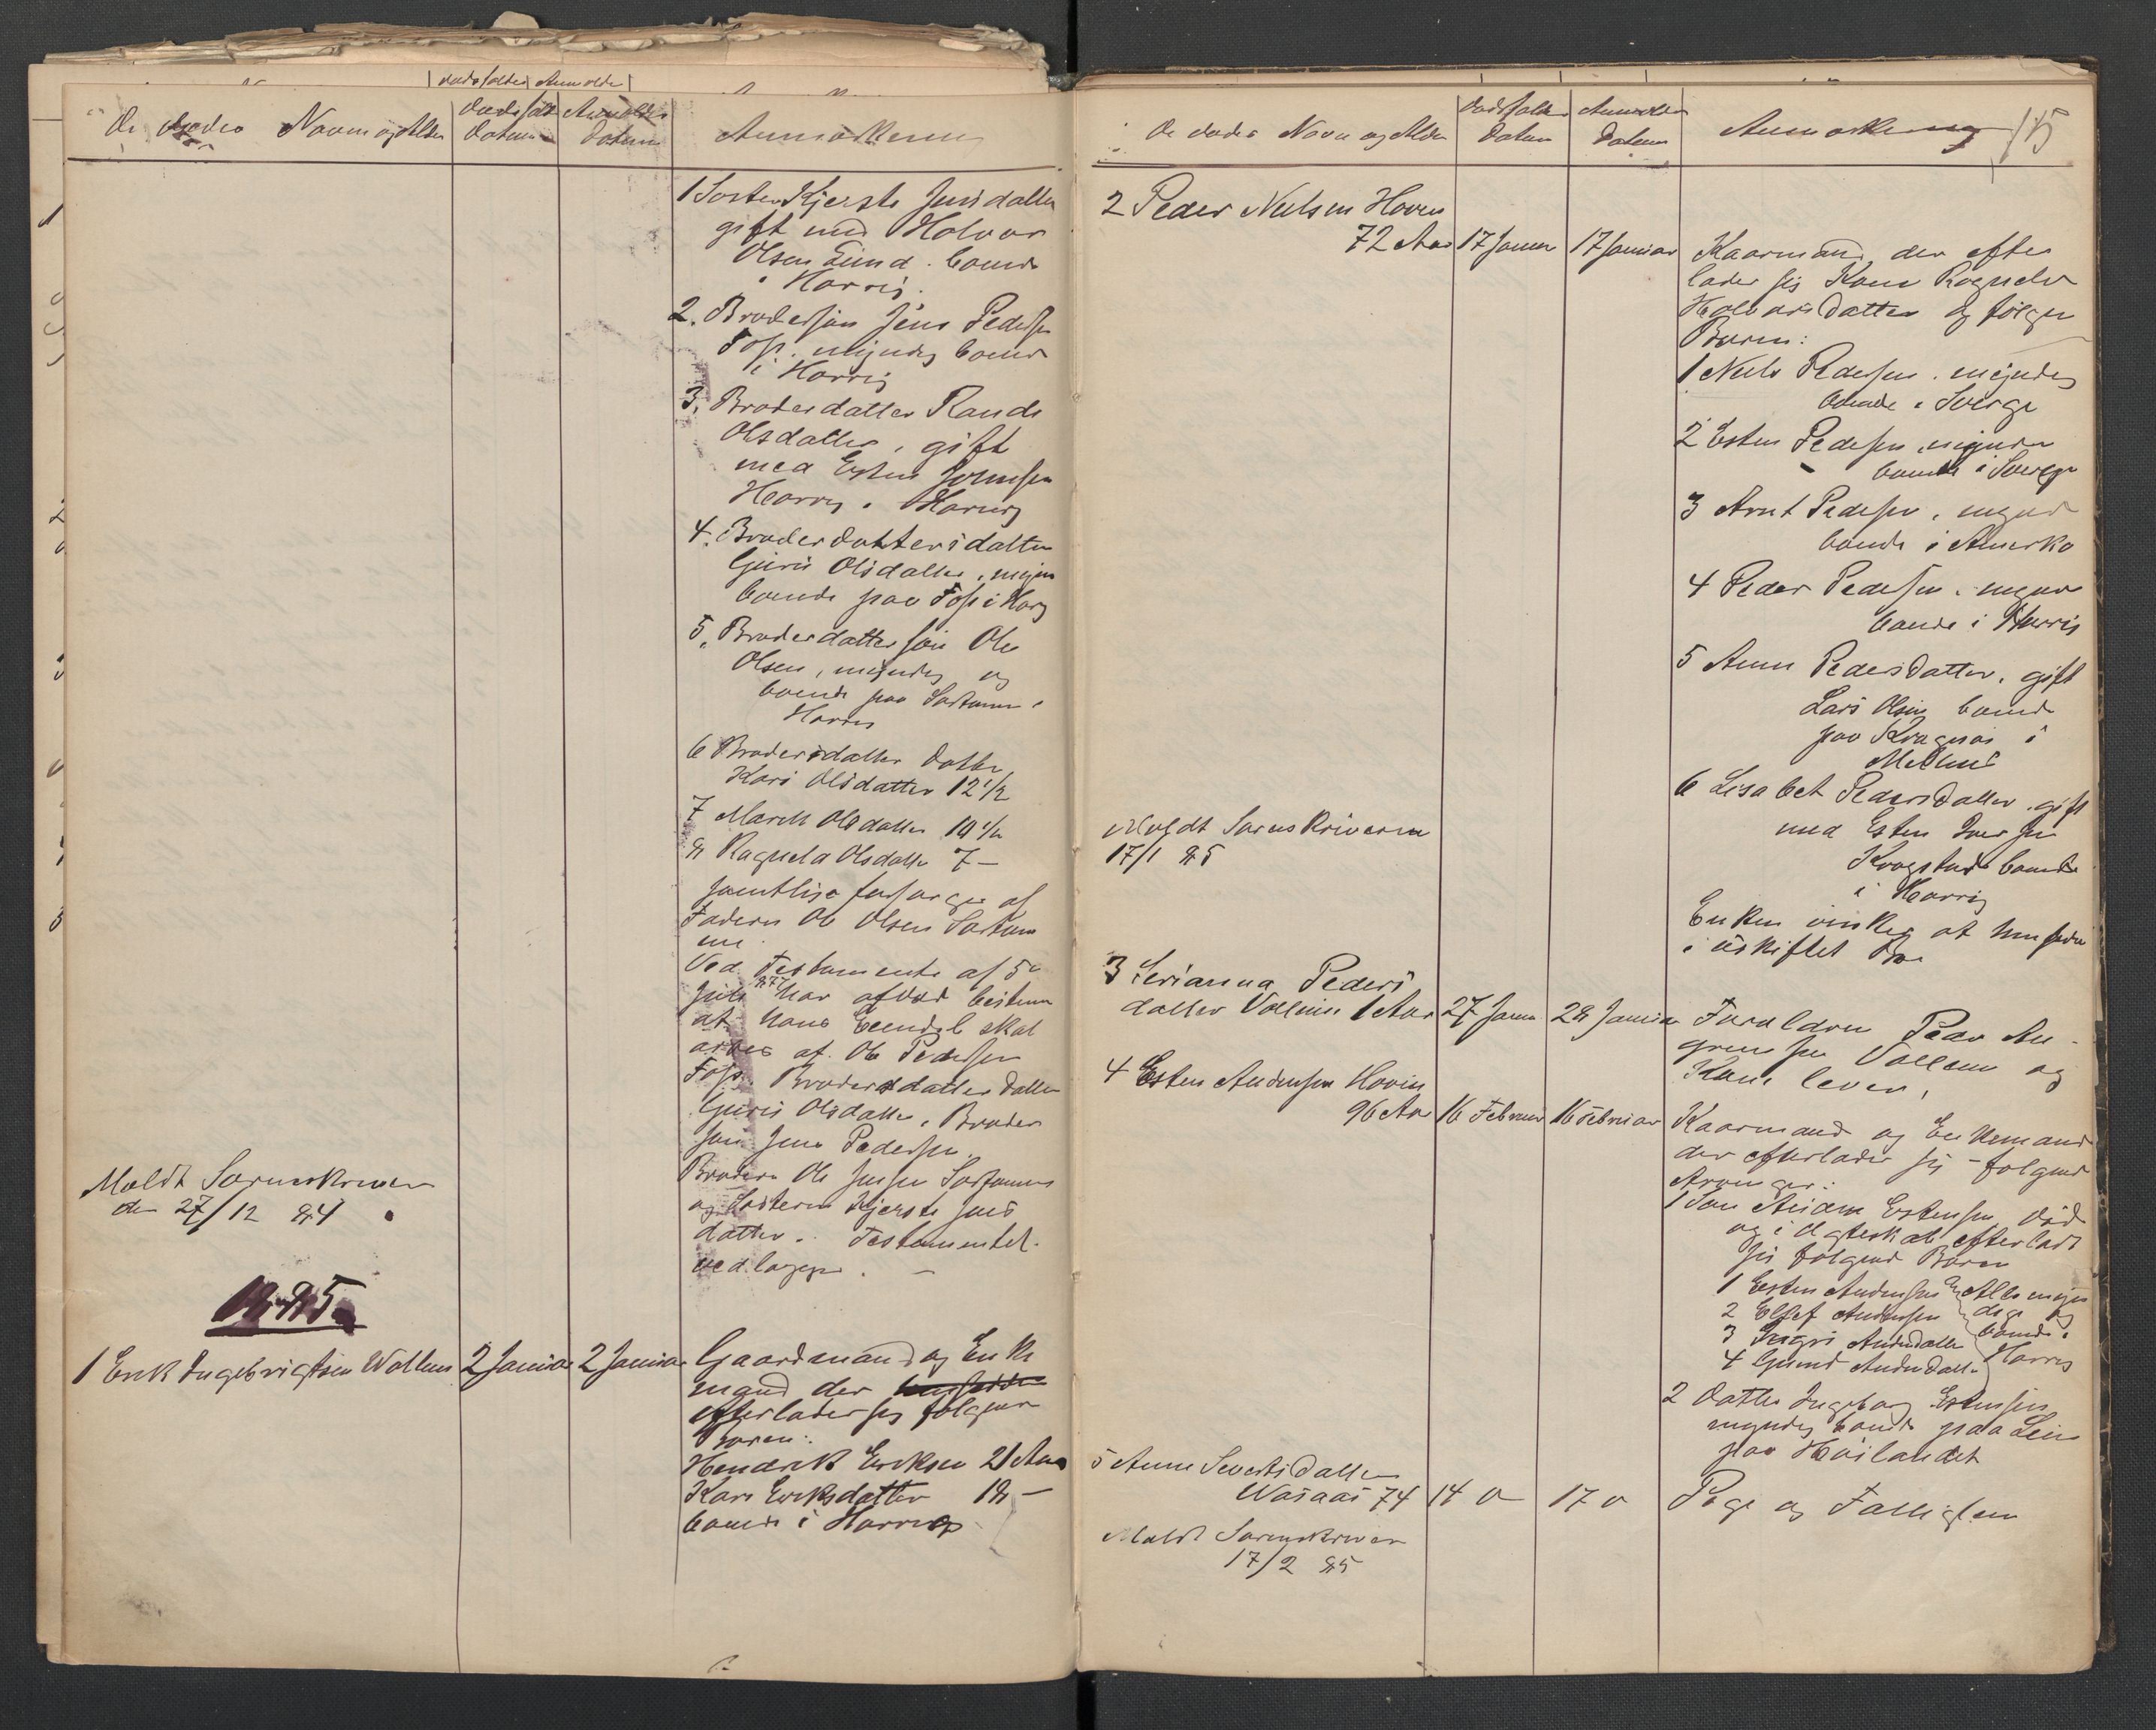 De døde Navn og Alder
dødsfaldets
datum
Anmeldes
datum
Anmærkning
1 Søster Kjerste Jensdatter
gift med Halvor
Olsen Eind. boende
i Horrig.
2. Brodersøn Jens Pedersen
Foss. myndig boende
i Horrig
3. Broderdatter Randi
Olsdatter, gift
med Esten
Horrig i Horrig
4. Broderdattersdatter
Guru Olsdatter, myn
boende paa Foss i Horg
5. Broderdattersøn Ole
Olsen, myndig og
boende paa i
Horrig
6 Brodersdatter datter
Kari Olsdatter 12 1/2
7 Marit Olsdatter 10 1/2
8 Ragnela Olsdatter 7 –
samtlige forsørges af
Faderen Ole Olsen
Ved Testamente af 5te
Juli 877 har afdød bestemt
at hans Eiendel skal
arves af. Ole Pedersen
Foss. Brodersdatter datter
Guru Olsdatter. Broder
søn Jens Pedersen.
Brodern Ole Jensen
og Søstern Kjerste Jens
datter. Testamentet
vedlægges. –
Meldt Sorenskriveren
den 27/12 84
1885
1 Erik Ingebrigtsen Wollum
2 Januar
2 Januar
Gaardmand og Enke
mand der
efterlader sig følgende
Børen:
Hendrik Eriksen 21 Aar
Kari Eriksdatter 18 –
boende i Horrig
De døde Navn og Alder
dødsfaldets
Datum
Anmeldes
Datum
Anmærkning
15
2 Peder Nielsen Hoven
72 Aar
17 Januar
17 Januar
Kaarmand der efter
lader sig Kone Ragnela
Halvorsdatter og følgen
Børen:
1 Niels Pedersen. myndig
boende i Sverge
2 Esten Pedersen, myndig
boende i Sverge
3 Arnt Pedersen, mynd
boende i Amerka
4 Peder Pedersen. mynd
boende i Horrig
5 Anne Pedersdatter. gift
Lars Olsen boende
paa Kragnæs i
Melhus
6 Lisabet Pedersdatter. gift
med Esten Iversen
Krogstad boende
i Horrig
Enken ønsker at hensidde
i uskiftet Bo
Meldt Sorenskriveren
17/1 85
3 Serianna Peders
datter Vollum 1 Aar
27 Janu
28 Januar
Foraldren Peder An-
grensen Vollum og
Kone lever,
4 Esten Andersen Hovin
96 Aar
16 Februar
16 Februar
Kaarmand og Enkemand
der efterlader sig følgend
Arvinger:
1 Søn Anders Estensen død
og i Egteskab efterladt
sig følgend Børen
1 Esten Andersen
2 Ellef Andersen
3 Ingri Andersdatter
4 Gunnil Andersdatter
Alle myn
dige og
boende i
Horrig
2 Datter Ingeborg Estensen
myndig boende paa Lein
paa Høilandet
5 Anne Sivertsdatter
Wasaas 74
14 "
17 "
Pige og Fattiglem
Meldt Sorenskriveren
17/2 85